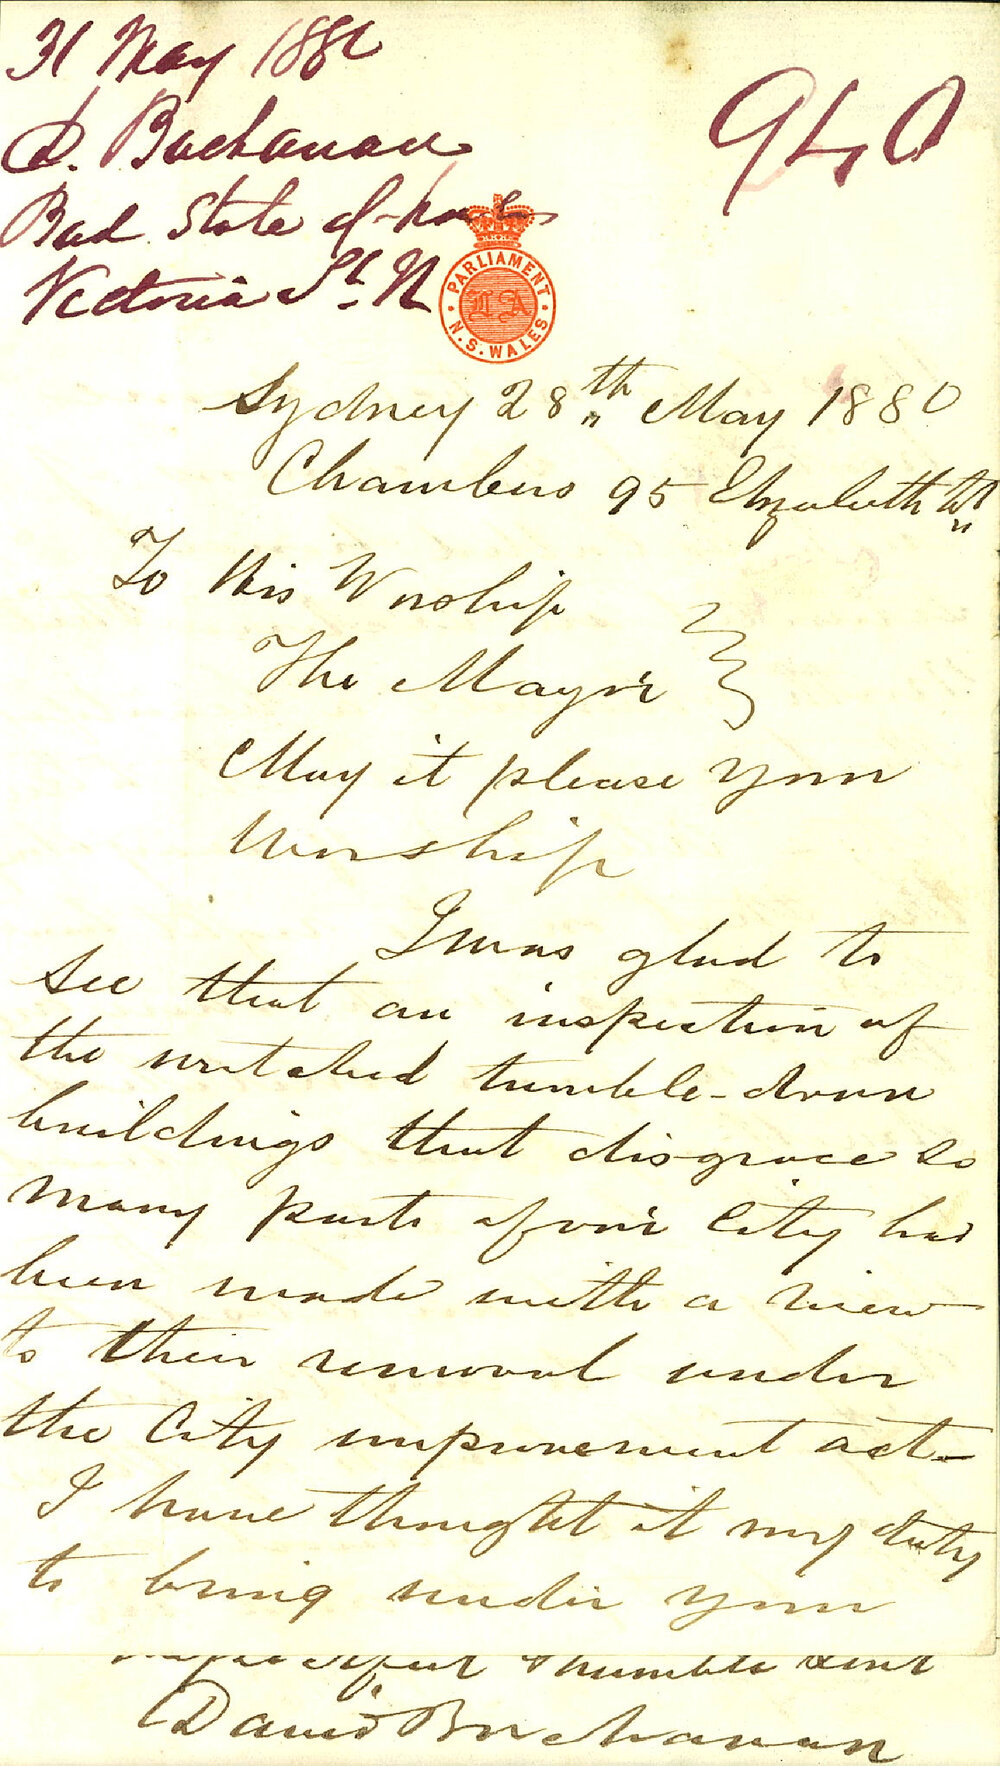 31 May 1880
D. Buchanan
Bad State of houses
Victoria St. N
940
PARLIAMENT
L A
N.S. WALES
Sydney 28th May 1880
Chambers 95 Elizabeth St
To His Worship
The Mayor
May it please your
Worship
I was glad to
see that an inspection of
the wretched tumble-down
buildings that disgrace so
many parts of our City has
been made with a view
to their removal under
the City improvement act-
I have thought it my duty
to bring under your
& humble servt
David Buchanan